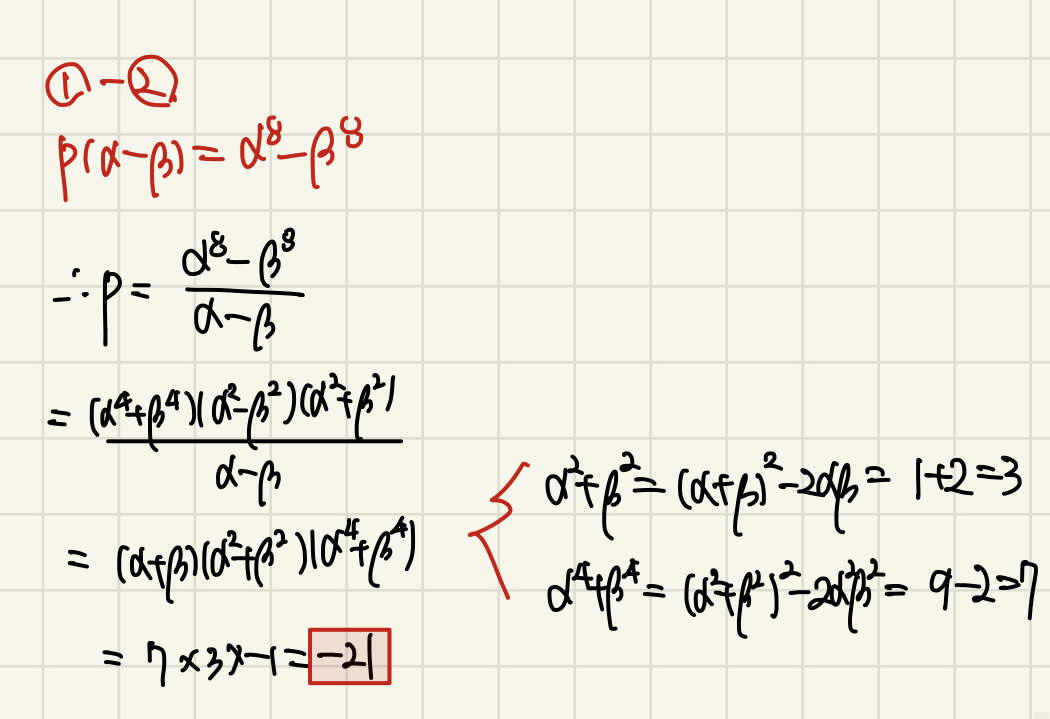 ① - ②
p(α-β) = α⁸-β⁸
∴ p = (α⁸-β⁸)/(α-β)
= (α⁴+β⁴)(α²-β²)(α²+β²)/(α-β)
= (α+β)(α²+β²)(α⁴+β⁴)
= 7×3×-1 = -21
α²+β² = (α+β)²-2αβ = 1+2=3
α⁴+β⁴ = (α²+β²)²-2α²β² = 9-2=7